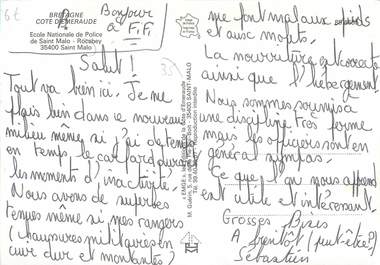 6€
BRETAGNE
COTE D'EMERAUDE
Ecole Nationale de Police
de Saint Malo - Rocabey
35400 Saint Malo
Bonjour
à F.F!
Salut!
Tout va bien ici. Je me
plais bien dans ce nouveau
milieu même si j'ai de temps
en temps le cafard durant
les moments d'inactivité.
Nous avons de superbes
tenues même si mes rangers
(chaussures militaires en
cuir dur et montantes)
me font mal aux pieds
et aux mollets.
La nourriture est correcte
ainsi que l'hébergement
Nous sommes soumis à
une discipline très ferme
mais les officiers sont en
général sympas.
Ce que l'on nous apprend
est utile et intéressant.
Grosses Bises
A bientôt (peut-être?)
Sébastien
35400 SAINT-MALO